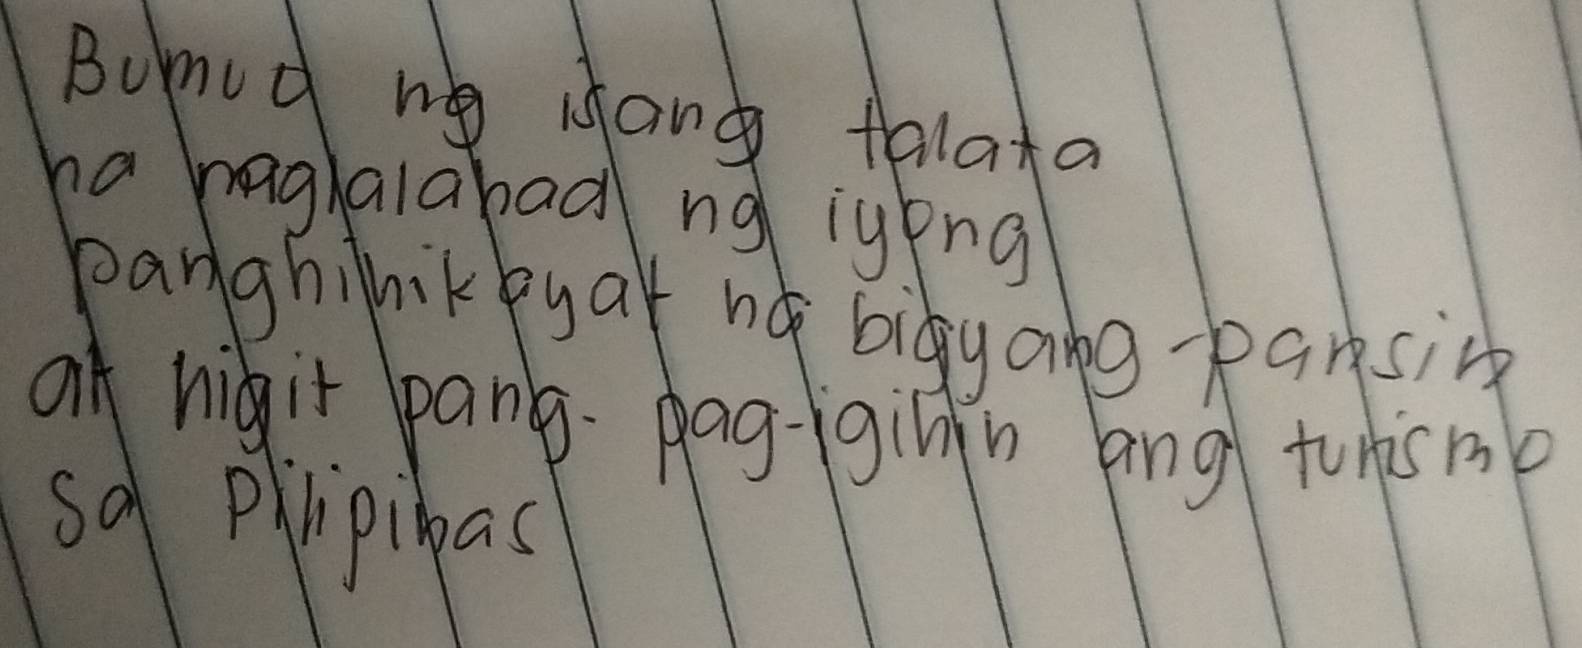 Bumuo ng isang talata
na naglalahad ng iyong
panghihikayat na bigyang-pansin
at higit pang pag-igihin ang turismo
sa Pilipinas